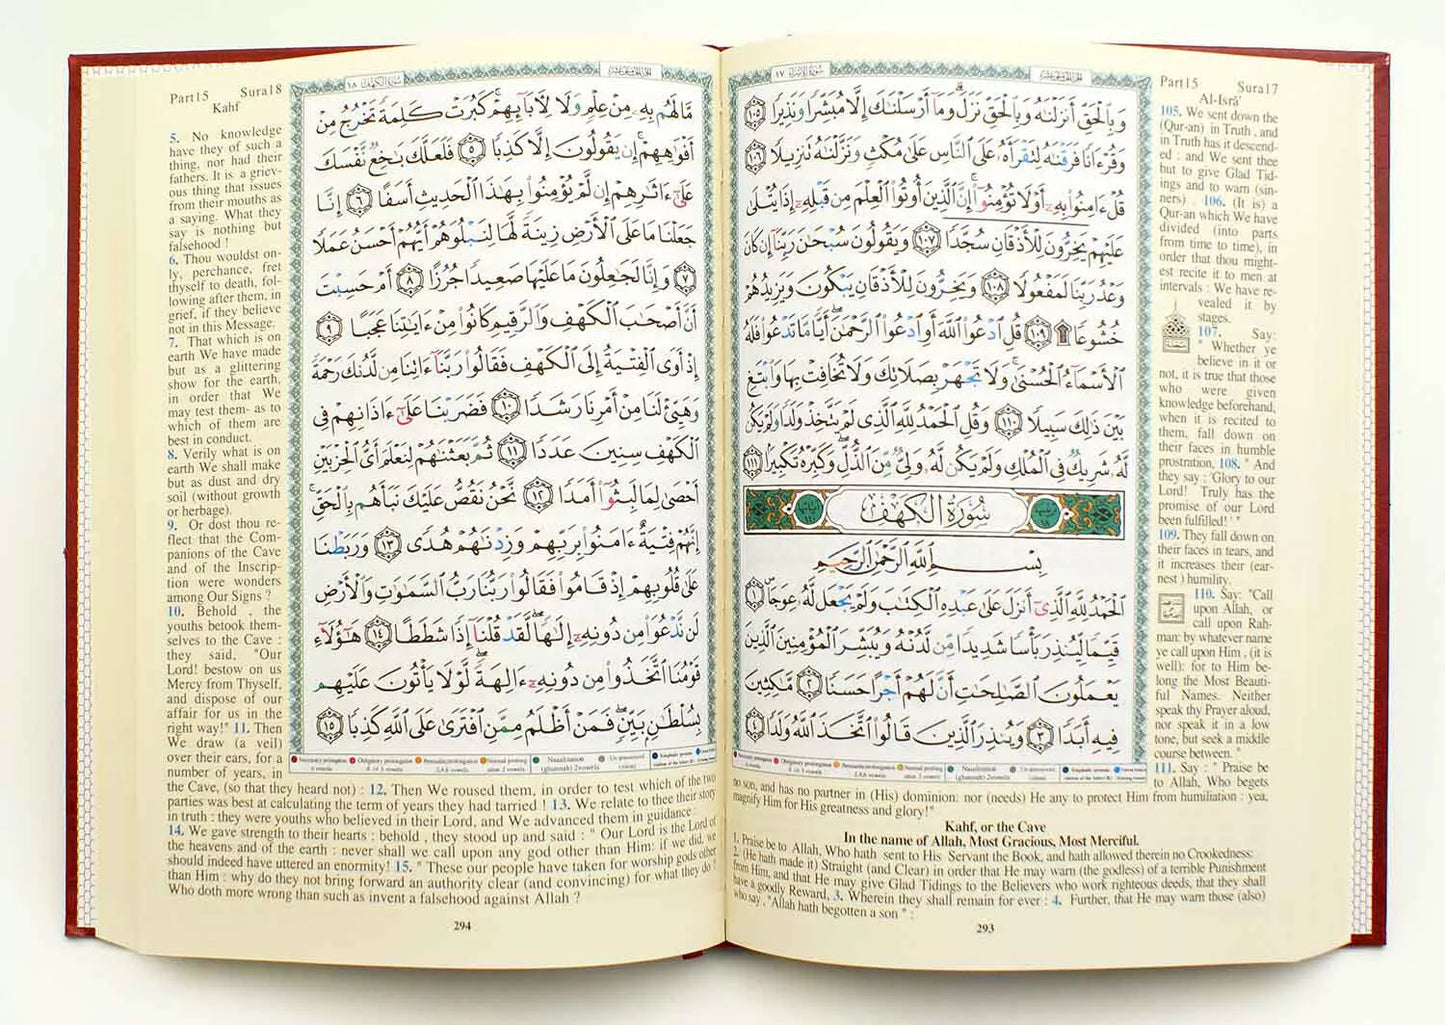 Part15 Sura17
Al-Isrà'
سُورَةُ الإِسْرَاء ١٧
الجزء الخامس عشر
وَبِٱلْحَقِّ أَنزَلْنَٰهُ وَبِٱلْحَقِّ نَزَلَ ۗ وَمَآ أَرْسَلْنَٰكَ إِلَّا مُبَشِّرًا وَنَذِيرًا ١٠٥
وَقُرْءَانًا فَرَقْنَٰهُ لِتَقْرَأَهُۥ عَلَى ٱلنَّاسِ عَلَىٰ مُكْثٍ وَنَزَّلْنَٰهُ تَنزِيلًا ١٠٦
قُلْ ءَامِنُوا۟ بِهِۦٓ أَوْ لَا تُؤْمِنُوٓا۟ ۚ إِنَّ ٱلَّذِينَ أُوتُوا۟ ٱلْعِلْمَ مِن قَبْلِهِۦٓ إِذَا يُتْلَىٰ
عَلَيْهِمْ يَخِرُّونَ لِلْأَذْقَانِ سُجَّدًا ١٠٧ وَيَقُولُونَ سُبْحَٰنَ رَبِّنَآ إِن كَانَ
وَعْدُ رَبِّنَا لَمَفْعُولًا ١٠٨ وَيَخِرُّونَ لِلْأَذْقَانِ يَبْكُونَ وَيَزِيدُهُمْ
خُشُوعًا ۩ ١٠٩ قُلِ ٱدْعُوا۟ ٱللَّهَ أَوِ ٱدْعُوا۟ ٱلرَّحْمَٰنَ ۖ أَيًّا مَّا تَدْعُوا۟ فَلَهُ
ٱلْأَسْمَآءُ ٱلْحُسْنَىٰ ۚ وَلَا تَجْهَرْ بِصَلَاتِكَ وَلَا تُخَافِتْ بِهَا وَٱبْتَغِ
بَيْنَ ذَٰلِكَ سَبِيلًا ١١٠ وَقُلِ ٱلْحَمْدُ لِلَّهِ ٱلَّذِى لَمْ يَتَّخِذْ وَلَدًا وَلَمْ يَكُن
لَّهُۥ شَرِيكٌ فِى ٱلْمُلْكِ وَلَمْ يَكُن لَّهُۥ وَلِىٌّ مِّنَ ٱلذُّلِّ ۖ وَكَبِّرْهُ تَكْبِيرًا ١١١
سُورَةُ الكَهْفِ
بِسْمِ ٱللَّهِ ٱلرَّحْمَٰنِ ٱلرَّحِيمِ
ٱلْحَمْدُ لِلَّهِ ٱلَّذِىٓ أَنزَلَ عَلَىٰ عَبْدِهِ ٱلْكِتَٰبَ وَلَمْ يَجْعَل لَّهُۥ عِوَجَا ۜ ١
قَيِّمًا لِّيُنذِرَ بَأْسًا شَدِيدًا مِّن لَّدُنْهُ وَيُبَشِّرَ ٱلْمُؤْمِنِينَ ٱلَّذِينَ
يَعْمَلُونَ ٱلصَّٰلِحَٰتِ أَنَّ لَهُمْ أَجْرًا حَسَنًا ٢ مَّٰكِثِينَ
فِيهِ أَبَدًا ٣ وَيُنذِرَ ٱلَّذِينَ قَالُوا۟ ٱتَّخَذَ ٱللَّهُ وَلَدًا ٤
105. We sent down the
(Qur-an) in Truth , and
in Truth has it descend-
ed : and We sent thee
but to give Glad Tid-
ings and to warn (sin-
ners) . 106. (It is) a
Qur-an which We have
divided (into parts
from time to time), in
order that thou might-
est recite it to men at
intervals : We have re-
vealed it by
stages.
107. Say:
" Whether ye
believe in it or
not, it is true that those
who were given
knowledge beforehand,
when it is recited to
them, fall down on
their faces in humble
prostration, 108. " And
they say : 'Glory to our
Lord! Truly has the
promise of our Lord
been fulfilled! ' "
109. They fall down on
their faces in tears, and
it increases their (ear-
nest ) humility.
110. Say: "Call
upon Allah, or
call upon Rah-
man: by whatever name
ye call upon Him , (it is
well): for to Him be-
long the Most Beauti-
ful Names. Neither
speak thy Prayer aloud,
nor speak it in a low
tone, but seek a middle
course between. "
111. Say : " Praise be
to Allah, Who begets
no son, and has no partner in (His) dominion: nor (needs) He any to protect Him from humiliation : yea,
magnify Him for His greatness and glory!"
Kahf, or the Cave
In the name of Allah, Most Gracious, Most Merciful.
1. Praise be to Allah, Who hath sent to His Servant the Book, and hath allowed therein no Crookedness:
2. (He hath made it) Straight (and Clear) in order that He may warn (the godless) of a terrible Punishment
from Him, and that He may give Glad Tidings to the Believers who work righteous deeds, that they shall
have a goodly Reward, 3. Wherein they shall remain for ever : 4. Further, that He may warn those (also)
who say , "Allah hath begotten a son " :
293
Part15 Sura18
Kahf
سُورَةُ الكَهْف ١٨
الجزء الخامس عشر
مَّا لَهُم بِهِۦ مِنْ عِلْمٍ وَلَا لِءَابَآئِهِمْ ۚ كَبُرَتْ كَلِمَةً تَخْرُجُ مِنْ
أَفْوَٰهِهِمْ ۚ إِن يَقُولُونَ إِلَّا كَذِبًا ٥ فَلَعَلَّكَ بَٰخِعٌ نَّفْسَكَ
عَلَىٰٓ ءَاثَٰرِهِمْ إِن لَّمْ يُؤْمِنُوا۟ بِهَٰذَا ٱلْحَدِيثِ أَسَفًا ٦ إِنَّا
جَعَلْنَا مَا عَلَى ٱلْأَرْضِ زِينَةً لَّهَا لِنَبْلُوَهُمْ أَيُّهُمْ أَحْسَنُ عَمَلًا
٧ وَإِنَّا لَجَٰعِلُونَ مَا عَلَيْهَا صَعِيدًا جُرُزًا ٨ أَمْ حَسِبْتَ
أَنَّ أَصْحَٰبَ ٱلْكَهْفِ وَٱلرَّقِيمِ كَانُوا۟ مِنْ ءَايَٰتِنَا عَجَبًا ٩
إِذْ أَوَى ٱلْفِتْيَةُ إِلَى ٱلْكَهْفِ فَقَالُوا۟ رَبَّنَآ ءَاتِنَا مِن لَّدُنكَ رَحْمَةً
وَهَيِّئْ لَنَا مِنْ أَمْرِنَا رَشَدًا ١٠ فَضَرَبْنَا عَلَىٰٓ ءَاذَانِهِمْ فِى
ٱلْكَهْفِ سِنِينَ عَدَدًا ١١ ثُمَّ بَعَثْنَٰهُمْ لِنَعْلَمَ أَىُّ ٱلْحِزْبَيْنِ
أَحْصَىٰ لِمَا لَبِثُوٓا۟ أَمَدًا ١٢ نَّحْنُ نَقُصُّ عَلَيْكَ نَبَأَهُم بِٱلْحَقِّ ۚ
إِنَّهُمْ فِتْيَةٌ ءَامَنُوا۟ بِرَبِّهِمْ وَزِدْنَٰهُمْ هُدًى ١٣ وَرَبَطْنَا
عَلَىٰ قُلُوبِهِمْ إِذْ قَامُوا۟ فَقَالُوا۟ رَبُّنَا رَبُّ ٱلسَّمَٰوَٰتِ وَٱلْأَرْضِ
لَن نَّدْعُوَا۟ مِن دُونِهِۦٓ إِلَٰهًا ۖ لَّقَدْ قُلْنَآ إِذًا شَطَطًا ١٤ هَٰٓؤُلَآءِ
قَوْمُنَا ٱتَّخَذُوا۟ مِن دُونِهِۦٓ ءَالِهَةً ۖ لَّوْلَا يَأْتُونَ عَلَيْهِم
بِسُلْطَٰنٍۭ بَيِّنٍ ۖ فَمَنْ أَظْلَمُ مِمَّنِ ٱفْتَرَىٰ عَلَى ٱللَّهِ كَذِبًا ١٥
5. No knowledge
have they of such a
thing, nor had their
fathers. It is a griev-
ous thing that issues
from their mouths as
a saying. What they
say is nothing but
falsehood !
6. Thou wouldst on-
ly, perchance, fret
thyself to death, fol-
lowing after them, in
grief, if they believe
not in this Message.
7. That which is on
earth We have made
but as a glittering
show for the earth,
in order that We
may test them- as to
which of them are
best in conduct.
8. Verily what is on
earth We shall make
but as dust and dry
soil (without growth
or herbage).
9. Or dost thou re-
flect that the Com-
panions of the Cave
and of the Inscrip-
tion were wonders
among Our Signs ?
10. Behold , the
youths betook them-
selves to the Cave :
they said, "Our
Lord! bestow on us
Mercy from Thyself,
and dispose of our
affair for us in the
right way!" 11. Then
We draw (a veil)
over their ears, for a
number of years, in
the Cave, (so that they heard not) : 12. Then We roused them, in order to test which of the two
parties was best at calculating the term of years they had tarried ! 13. We relate to thee their story
in truth : they were youths who believed in their Lord, and We advanced them in guidance :
14. We gave strength to their hearts : behold , they stood up and said : " Our Lord is the Lord of
the heavens and of the earth : never shall we call upon any god other than Him: if we did, we
should indeed have uttered an enormity! 15. " These our people have taken for worship gods other
than Him : why do they not bring forward an authority clear (and convincing) for what they do ?
Who doth more wrong than such as invent a falsehood against Allah ?
294